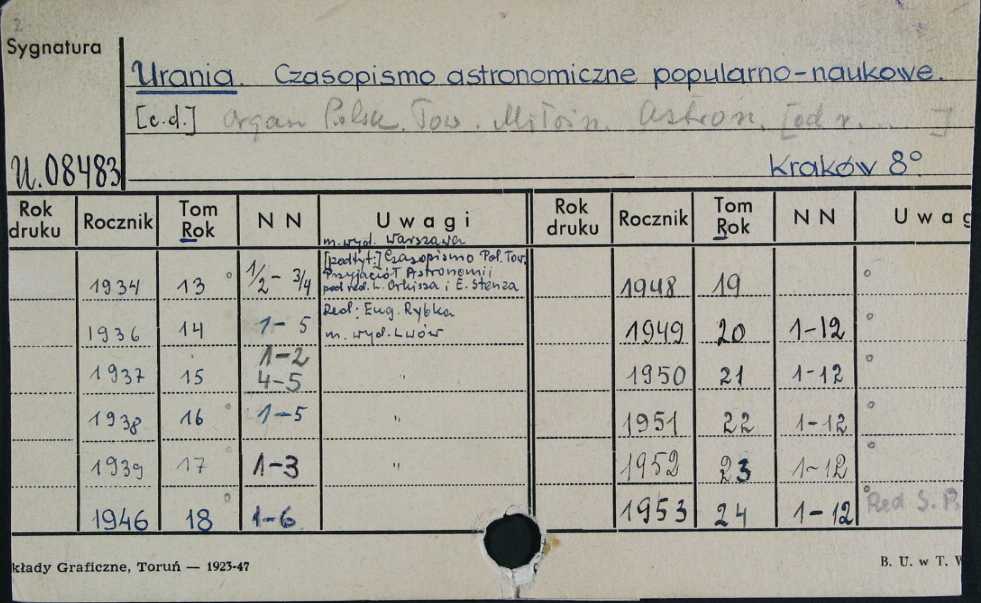 2
Sygnatura
Urania. Czasopismo astronomiczne popularno-naukowe.
[c.d.] Organ Polsk. Tow. Miłośn. Astron. [od r. ... ]
U.08483
Kraków 8°
Rok druku Rocznik Tom Rok N N Uwagi Rok druku Rocznik Tom Rok N N Uwag
m. wyd. Warszawa
[podtyt:] Czasopismo Pol. Tow.
Przyjaciół Astronomii
pod red. L. Orkisza i E. Stenza
1934 13 ° 1/2 - 3/4 1948 19 °
Red: Eug. Rybka
m. wyd. Lwów
1936 14 1-5 1949 20 1-12 °
1937 15 1-2 4-5 " 1950 21 1-12 °
1938 16 ° 1-5 " 1951 22 1-12 °
1939 17 ° 1-3 " 1952 23 1-12 °
1946 18 ° 1-6 1953 24 1-12 ° Red S. P.
kłady Graficzne, Toruń — 1923-47
B. U. w T. W